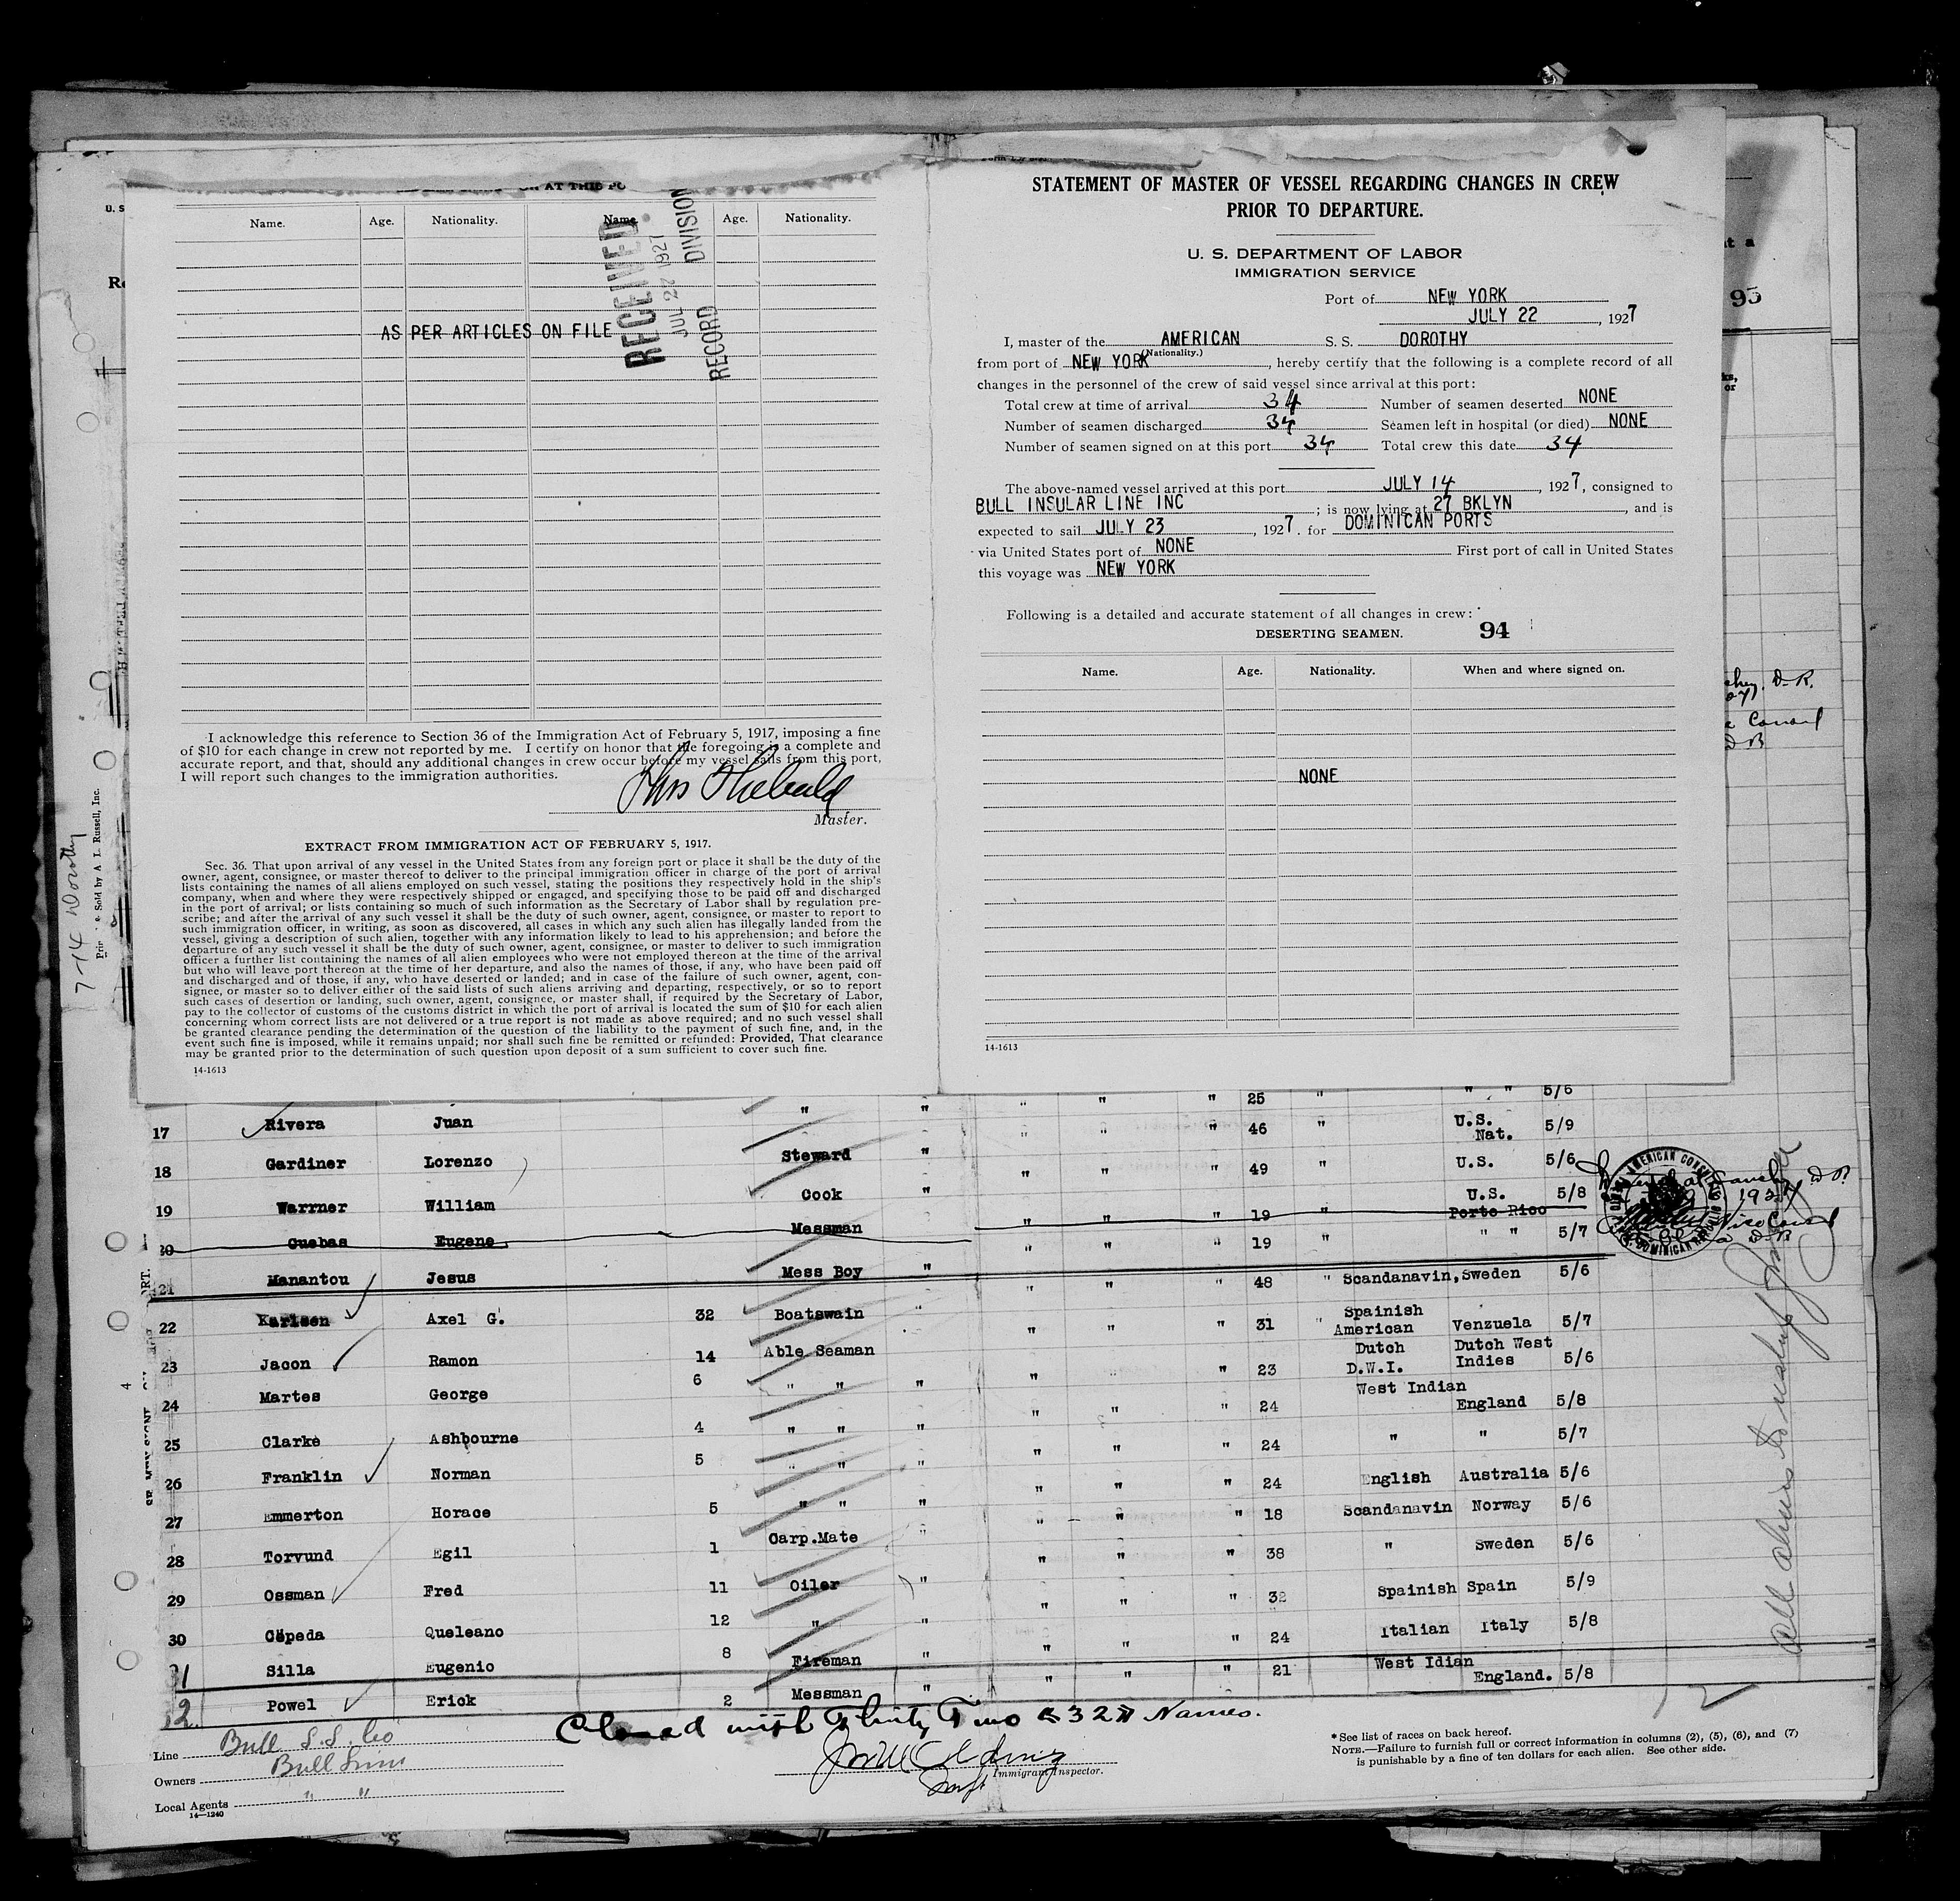 Name. Age. Nationality. Name. Age. Nationality.
RECEIVED
JUL 27 1927
RECORD DIVISION
AS PER ARTICLES ON FILE
I acknowledge this reference to Section 36 of the Immigration Act of February 5, 1917, imposing a fine
of $10 for each change in crew not reported by me. I certify on honor that the foregoing is a complete and
accurate report, and that, should any additional changes in crew occur before my vessel sails from this port,
I will report such changes to the immigration authorities.
Master.
EXTRACT FROM IMMIGRATION ACT OF FEBRUARY 5, 1917.
Sec. 36. That upon arrival of any vessel in the United States from any foreign port or place it shall be the duty of the
owner, agent, consignee, or master thereof to deliver to the principal immigration officer in charge of the port of arrival
lists containing the names of all aliens employed on such vessel, stating the positions they respectively hold in the ship's
company, when and where they were respectively shipped or engaged, and specifying those to be paid off and discharged
in the port of arrival; or lists containing so much of such information as the Secretary of Labor shall by regulation pre-
scribe; and after the arrival of any such vessel it shall be the duty of such owner, agent, consignee, or master to report to
such immigration officer, in writing, as soon as discovered, all cases in which any such alien has illegally landed from the
vessel, giving a description of such alien, together with any information likely to lead to his apprehension; and before the
departure of any such vessel it shall be the duty of such owner, agent, consignee, or master to deliver to such immigration
officer a further list containing the names of all alien employees who were not employed thereon at the time of the arrival
but who will leave port thereon at the time of her departure, and also the names of those, if any, who have been paid off
and discharged and of those, if any, who have deserted or landed; and in case of the failure of such owner, agent, con-
signee, or master so to deliver either of the said lists of such aliens arriving and departing, respectively, or so to report
such cases of desertion or landing, such owner, agent, consignee, or master shall, if required by the Secretary of Labor,
pay to the collector of customs of the customs district in which the port of arrival is located the sum of $10 for each alien
concerning whom correct lists are not delivered or a true report is not made as above required; and no such vessel shall
be granted clearance pending the determination of the question of the liability to the payment of such fine, and, in the
event such fine is imposed, while it remains unpaid; nor shall such fine be remitted or refunded: Provided, That clearance
may be granted prior to the determination of such question upon deposit of a sum sufficient to cover such fine.
14-1613
STATEMENT OF MASTER OF VESSEL REGARDING CHANGES IN CREW
PRIOR TO DEPARTURE.
U. S. DEPARTMENT OF LABOR
IMMIGRATION SERVICE
Port of NEW YORK
JULY 22, 1927
I, master of the AMERICAN S. S. DOROTHY
(Nationality.)
from port of NEW YORK, hereby certify that the following is a complete record of all
changes in the personnel of the crew of said vessel since arrival at this port:
Total crew at time of arrival 34 Number of seamen deserted NONE
Number of seamen discharged 34 Seamen left in hospital (or died) NONE
Number of seamen signed on at this port 34 Total crew this date 34
The above-named vessel arrived at this port JULY 14, 1927, consigned to
BULL INSULAR LINE INC; is now lying at 27 BKLYN, and is
expected to sail JULY 23, 1927. for DOMINICAN PORTS
via United States port of NONE First port of call in United States
this voyage was NEW YORK
Following is a detailed and accurate statement of all changes in crew:
DESERTING SEAMEN. 94
Name. Age. Nationality. When and where signed on.
NONE
14-1613
95
7-14 Dorothy
Sold by A. L. Russell, Inc.
" " " " " 25 " " " 5/6
17 Rivera Juan " " " " " 46 " U.S. Nat. 5/9
18 Gardiner Lorenzo Steward " " " " 49 " U.S. 5/6
19 Warrner William Cook " " " " 19 " U.S. Porto Rico 5/8
20 Guebas Eugene Messman " " " 19 " " 5/7
21 Manantou Jesus Mess Boy " " " " 48 " Scandanavin, Sweden 5/6
22 Karlsen Axel G. 32 Boatswain " " " " 31 " Spainish American Venzuela 5/7
23 Jacon Ramon 14 Able Seaman " " 23 Dutch D.W.I. Dutch West Indies 5/6
24 Martes George 6 " " " " " " 24 West Indian England 5/8
25 Clarke Ashbourne 4 " " " " " " 24 " " 5/7
26 Franklin Norman 5 " " " " " " 24 English Australia 5/6
27 Emmerton Horace 5 " " " " " " 18 Scandanavin Norway 5/6
28 Torvund Egil 1 Carp.Mate " " " " 38 " Sweden 5/6
29 Ossman Fred 11 Oiler " " " " 32 Spainish Spain 5/9
30 Cepeda Queleano 12 " " " " " 24 Italian Italy 5/8
31 Silla Eugenio 8 Fireman " " " " 21 West Idian England. 5/8
32 Powel Erick 2 Messman "
Closed with Thirty Two "32" Names.
AMERICAN CONSUL
DOMINICAN REPUBLIC
Line Bull S.S. Co
Owners Bull Line
Local Agents " "
14—1240
Immigrant Inspector.
*See list of races on back hereof.
NOTE.—Failure to furnish full or correct information in columns (2), (5), (6), and (7)
is punishable by a fine of ten dollars for each alien. See other side.